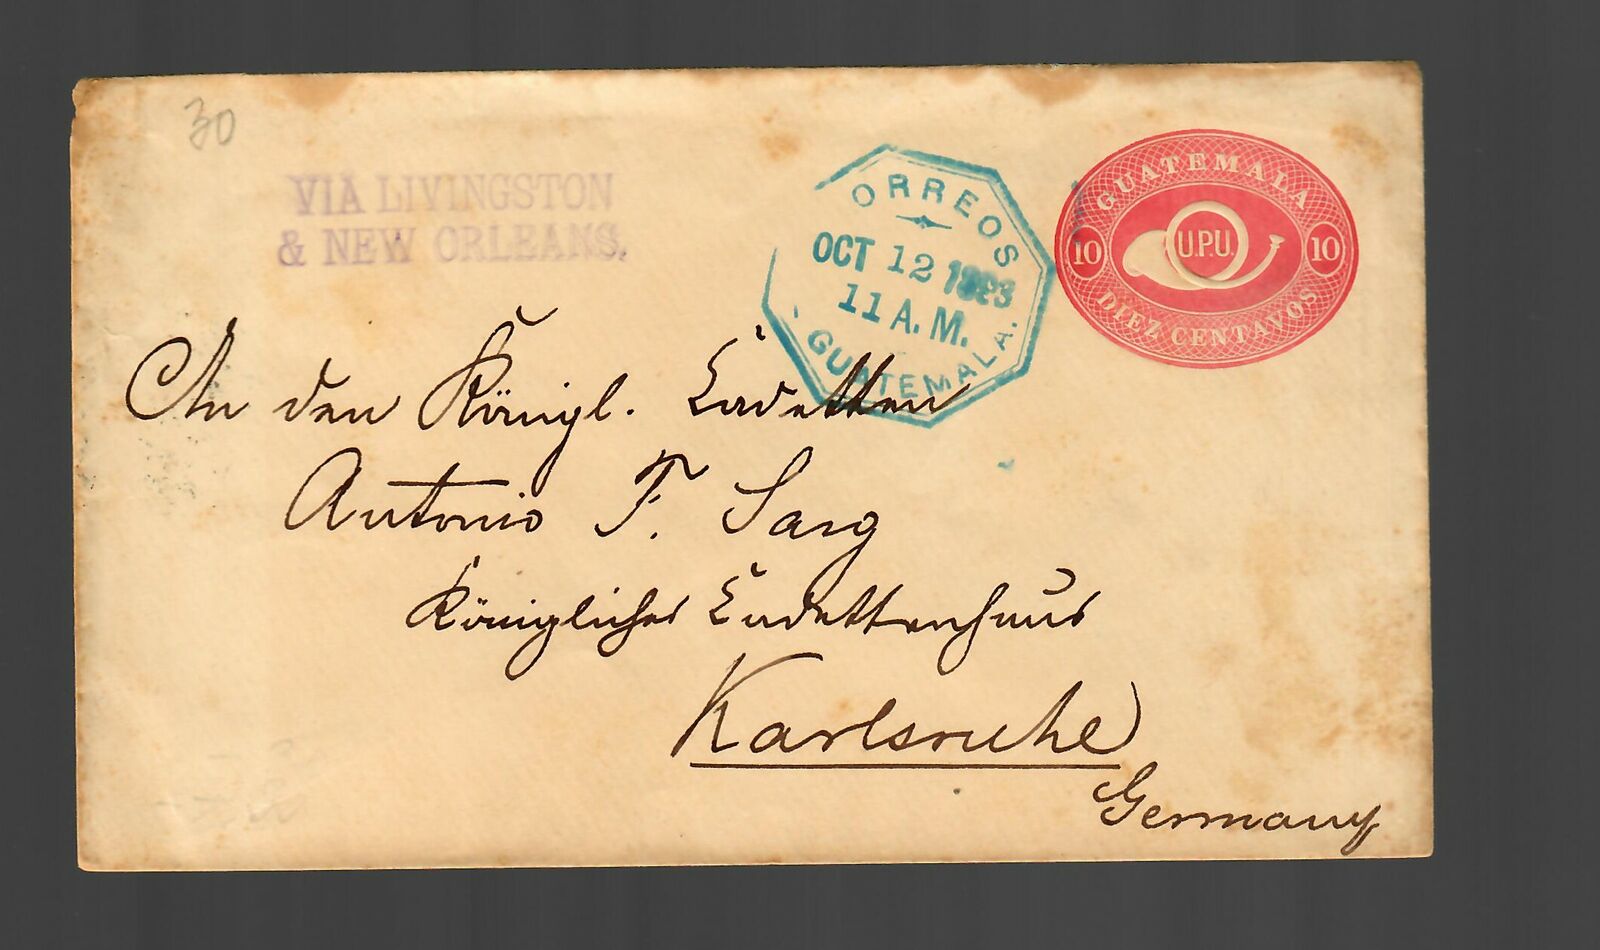 30
VIA LIVINGSTON
& NEW ORLEANS.
ORREOS
OCT 12 1893
11 A.M.
GUATEMALA.
GUATEMALA
10 U.P.U. 10
DIEZ CENTAVOS
An den Königl. Cadetten
Antonio F. Sarg
Königliches Cadettenhaus
Karlsruhe
Germany